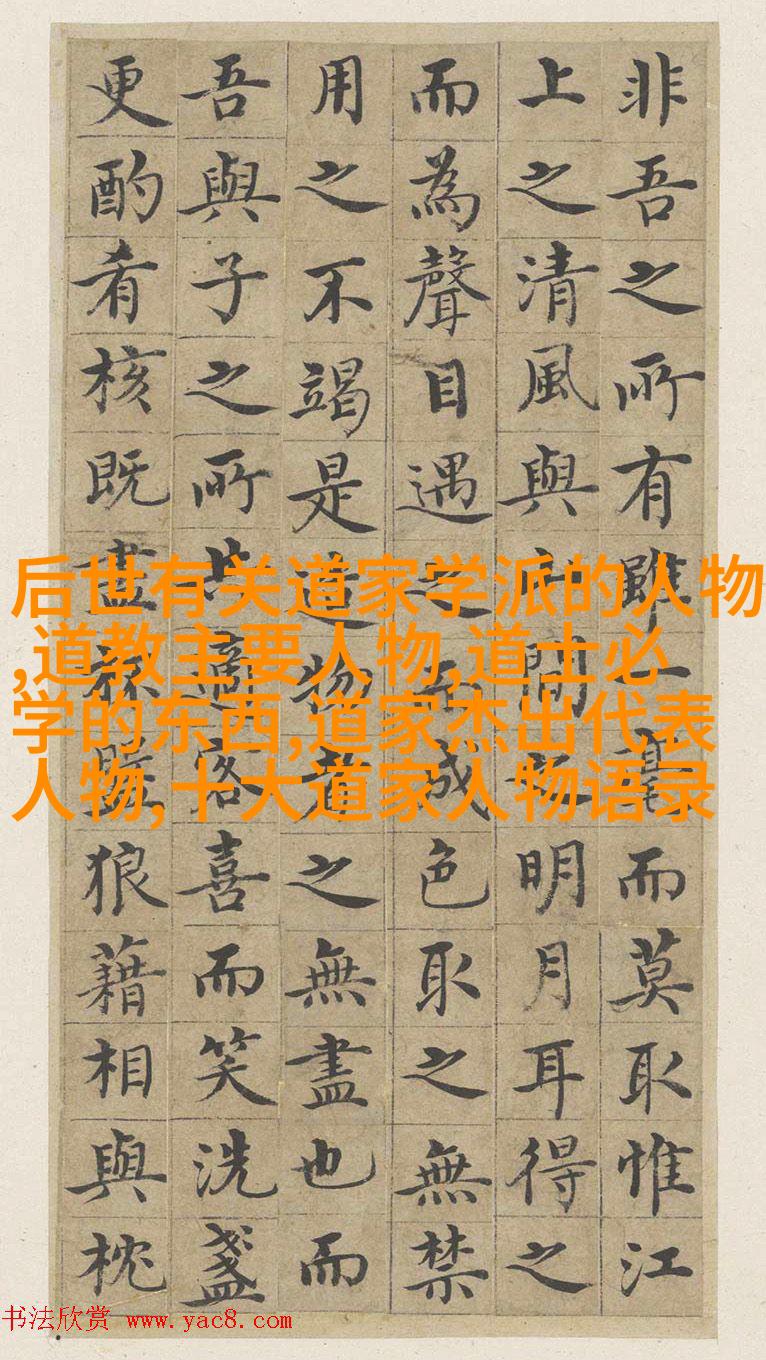 非吾之所有雖一毫而莫取惟江
上之清風與山間之明月耳得之
而為聲目遇之而成色取之無禁
用之不竭是造物者之無盡也而
吾與子之所共適客喜而笑洗盞
更酌肴核既盡杯盤狼藉相與枕
后世有关道家学派的人物
,道教主要人物,道士必
学的东西,道家杰出代表
人物,十大道家人物语录
书法欣赏 www.yac8.com